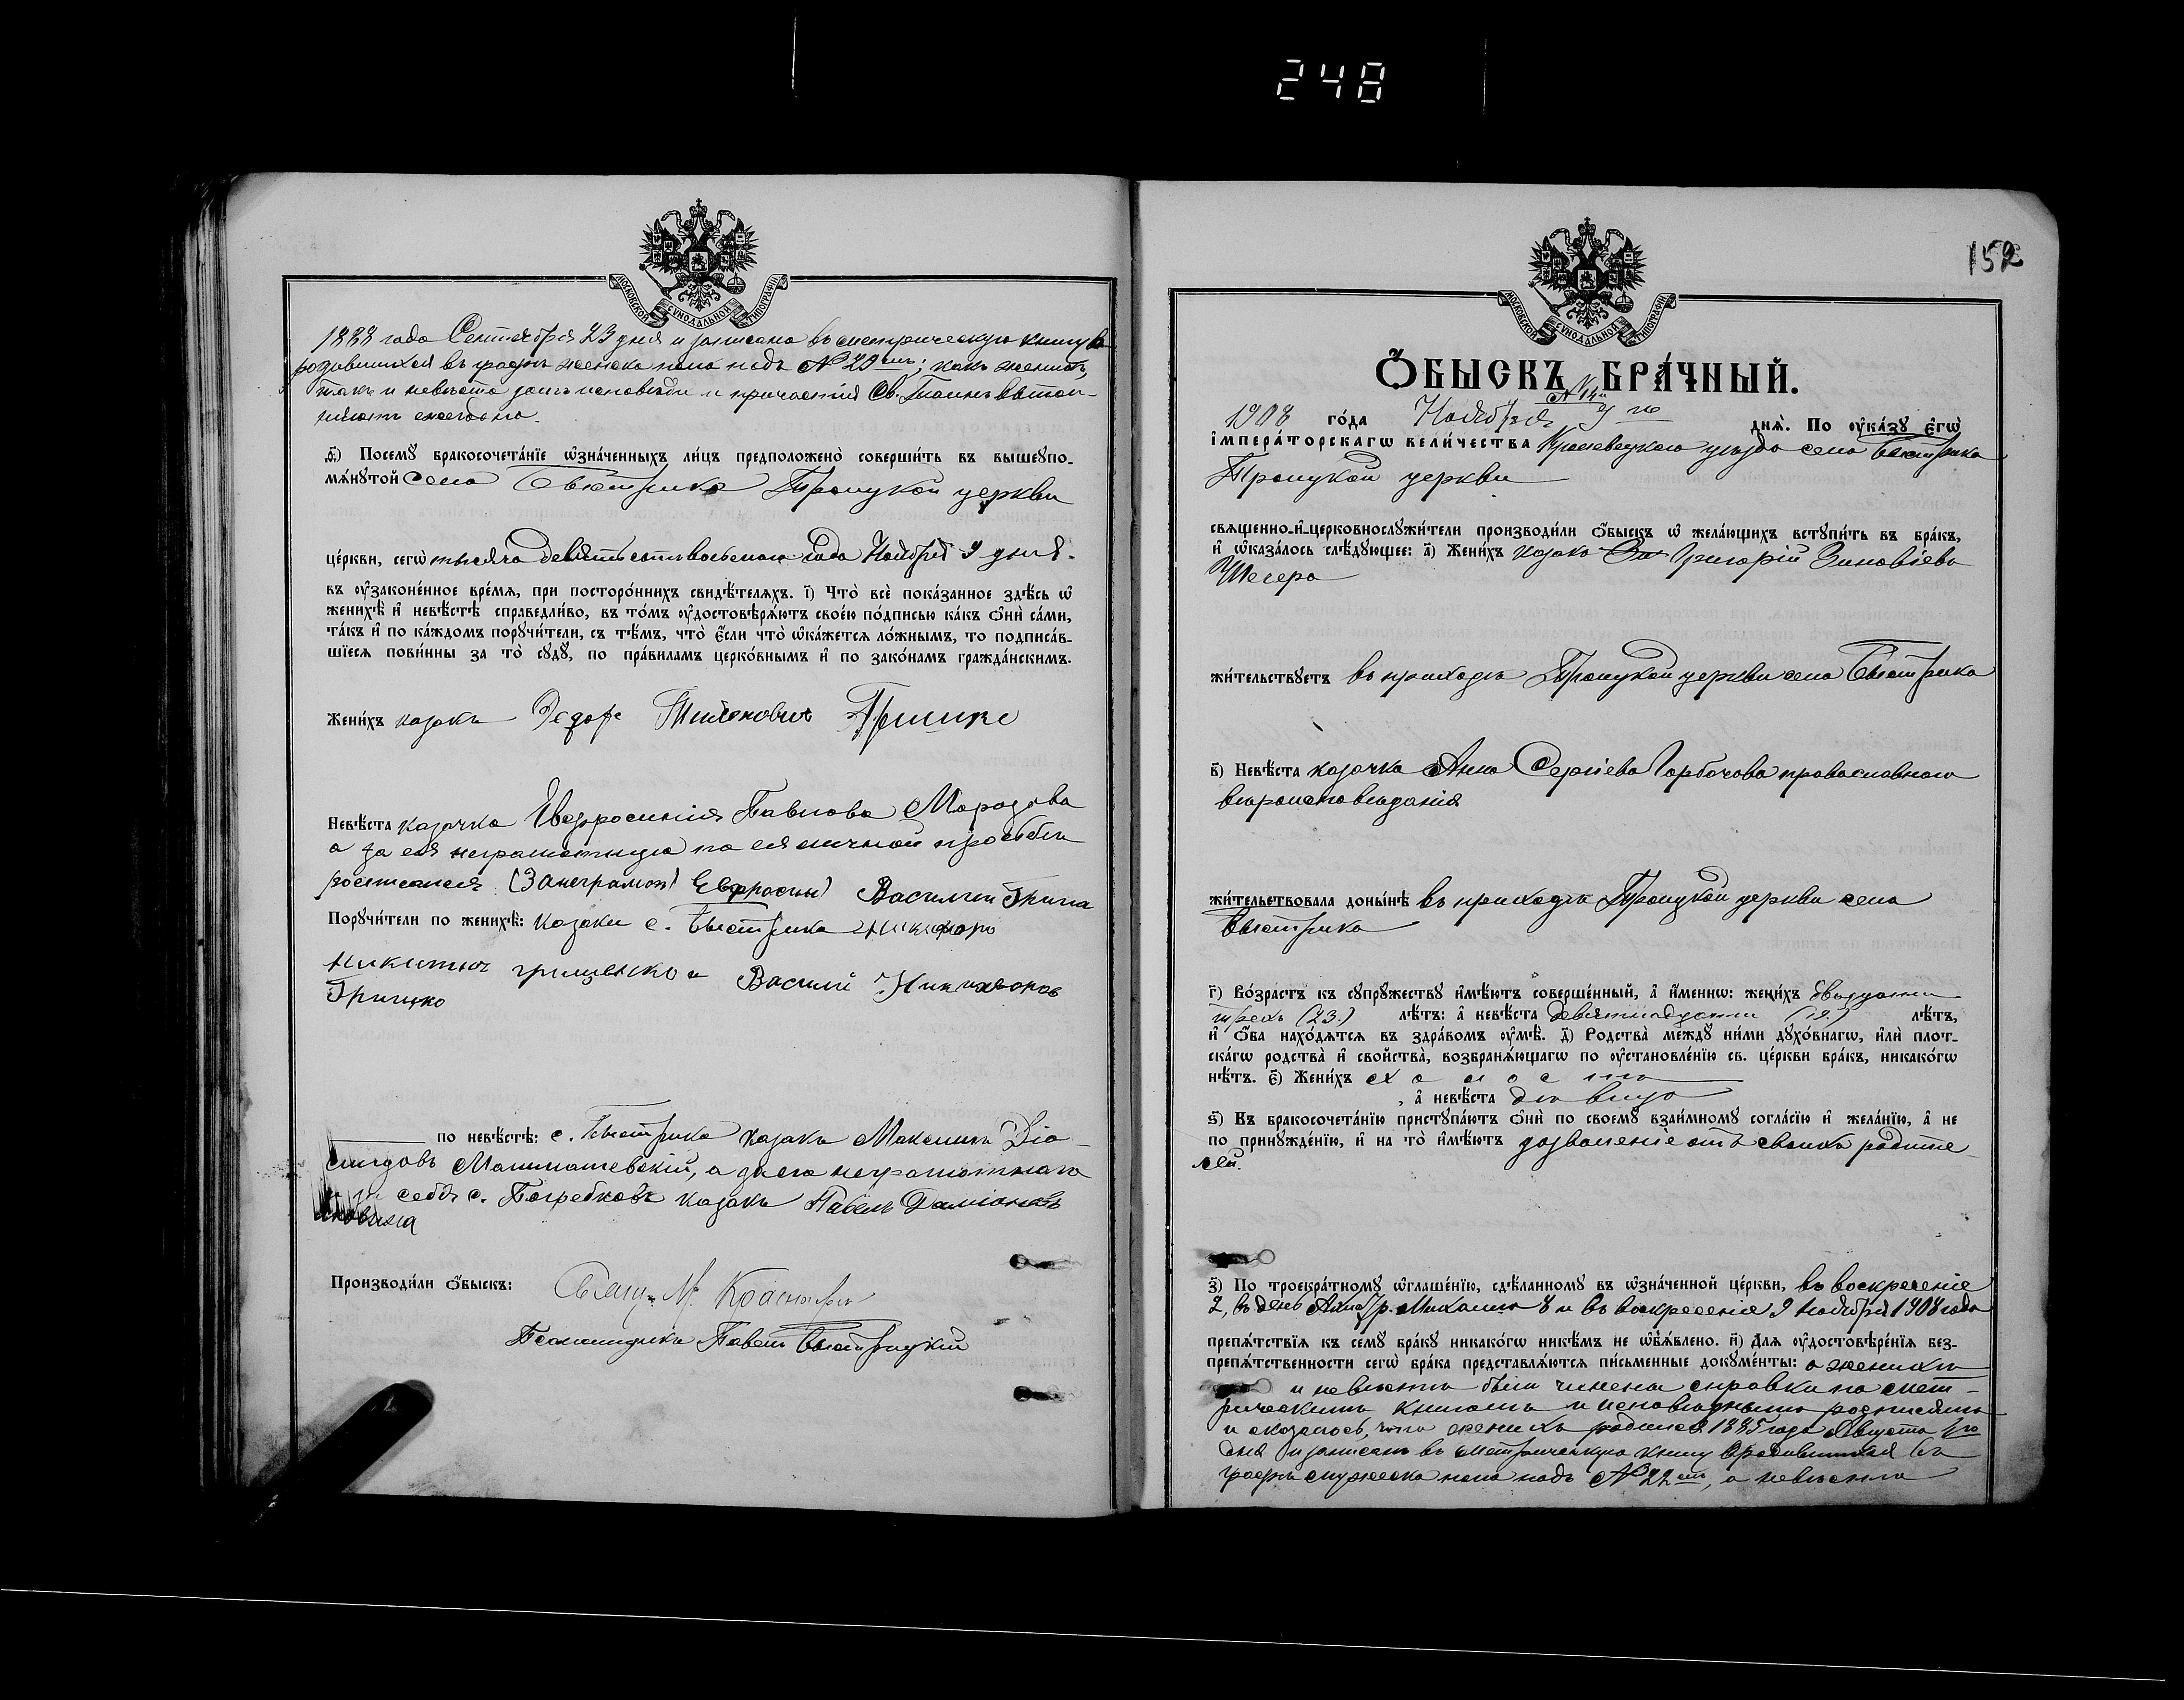 248
МОСКОВСКОЙ СѴНОДАЛЬНОЙ ТИПОГРАФІИ
1888 года Сентября 23 дня и записана въ метрическую книгу о
родившихся въ графѣ женска пола подъ № 29; какъ женихъ,
такъ и невѣста долгъ исповѣди и причастія Св. Таинъ выпол-
няютъ ежегодно.
ѳ҃) Посемꙋ̀ бракосочета́нїе ѡ҆зна́ченныхъ ли́цъ предположено̀ соверши́ть въ вышеꙋпо-
мѧ́нꙋтой Села Быстрика Троицкой церкви
це́ркви, сегѡ̀ тысяча девятьсотъ восьмого года Ноября 9 дня.
въ ᲂу҆законе́нное вре́мѧ, при посторо́ннихъ свидѣ́телѧхъ. і҃) Что̀ всѐ пока́занное здѣ́сь ѡ҆
женихѣ̀ и҆ невѣ́стѣ справедли́во, въ то́мъ ᲂу҆достовѣрѧ́ютъ свое́ю по́дписью ка́къ ѻ҆нѝ са́ми,
та́къ и҆ по ка́ждомъ порꙋчи́тели, съ тѣ́мъ, что̀ є҆́сли что̀ ѡ҆ка́жетсѧ ло́жнымъ, то подписа́в-
шїесѧ пови́нны за то̀ сꙋдꙋ̀, по пра́виламъ церко́внымъ и҆ по зако́намъ гражда́нскимъ.
Жени́хъ казакъ Федоръ Грицко
Невѣ́ста казачка Евфросинія Павлова Морозова
а за ея неграмотную по ея личной просьбѣ
росписался Василий
Порꙋчи́тели по женихѣ̀: казаки с. Быстрика Никифоръ
Никитичъ грищенко и Василий
Грицко
по невѣ́стѣ: с. Быстрика казакъ Максимъ
а за его неграмотнаго
и за себя с. Погребковъ казакъ Павелъ
Производи́ли ѻ҆́быскъ: Свящ. М.
Псаломщикъ Павелъ Быстрицкій
152
МОСКОВСКОЙ СѴНОДАЛЬНОЙ ТИПОГРАФІИ
Ѻ҆́БЫСКЪ БРА́ЧНЫЙ.
1908 го́да Ноября 9 го днѧ̀. По ᲂу҆ка́зꙋ Є҆гѡ̀
і҆мпера́торскагѡ вели́чества Кролевецкаго уѣзда села Быстрика
Троицкой церкви
свѧщенно-и҆-церковнослꙋжи́тели производи́ли ѻ҆́быскъ ѡ҆ жела́ющихъ встꙋпи́ть въ бра́къ,
и҆ ѡ҆каза́лось слѣ́дꙋющее: а҃) Жени́хъ казакъ Григорій Зиновіевъ
Шегера
жи́тельствꙋетъ въ приходѣ Троицкой церкви села Быстрика
в҃) Невѣ́ста казачка Анна Сергіева Горбачова православнаго
вѣроисповѣданія
жи́тельствовала доны́нѣ въ приходѣ Троицкой церкви села
Быстрика
г҃) Во́зрастъ къ сꙋпрꙋ́жествꙋ и҆мѣ́ютъ соверше́нный, а҆ и҆́меннѡ: жени́хъ двадцати
трехъ (23.) лѣ́тъ: а҆ невѣ́ста девятнадцати (19.) лѣ́тъ,
и҆ ѻ҆́ба нахо́дѧтсѧ въ здра́вомъ ᲂу҆мѣ̀. д҃) Родства̀ междꙋ̀ ни́ми дꙋхо́внагѡ, и҆лѝ плот-
ска́гѡ родства̀ и҆ свойства̀, возбранѧ́ющагѡ по ᲂу҆становле́нїю св. це́ркви бра́къ, никако́гѡ
нѣ́тъ. є҃) Жени́хъ холостъ
, а҆ невѣ́ста дѣвица
ѕ҃) Въ бракосочета́нїю пристꙋпа́ютъ ѻ҆нѝ по своемꙋ̀ взаи́мномꙋ согла́сїю и҆ жела́нїю, а҆ не
по принꙋжде́нїю, и҆ на то̀ и҆мѣ́ютъ дозволеніе отъ своихъ родите-
лей.
з҃) По троекра́тномꙋ ѡ҆глаше́нїю, сдѣ́ланномꙋ въ ѡ҆зна́ченной це́ркви, въ воскресеніе
2, въ день Архистр. Михаила 8 и въ воскресеніе 9 Ноября 1908 года
препѧ́тствїѧ къ семꙋ̀ бра́кꙋ никако́гѡ никѣ́мъ не ѡ҆б̾ѧ́влено. и҃) Длѧ ᲂу҆достовѣре́нїѧ без-
препѧ́тственности сегѡ̀ бра́ка представлѧ́ютсѧ пи́сьменные докꙋме́нты: о женихѣ
и невѣстѣ были чинены справки по мет-
рическимъ книгамъ и исповѣднымъ росписямъ
и оказалось, что женихъ родился 1885 года Августа
дня и записанъ въ метрическую книгу о родившихся въ
графѣ мужеска пола подъ № 22, а невѣста